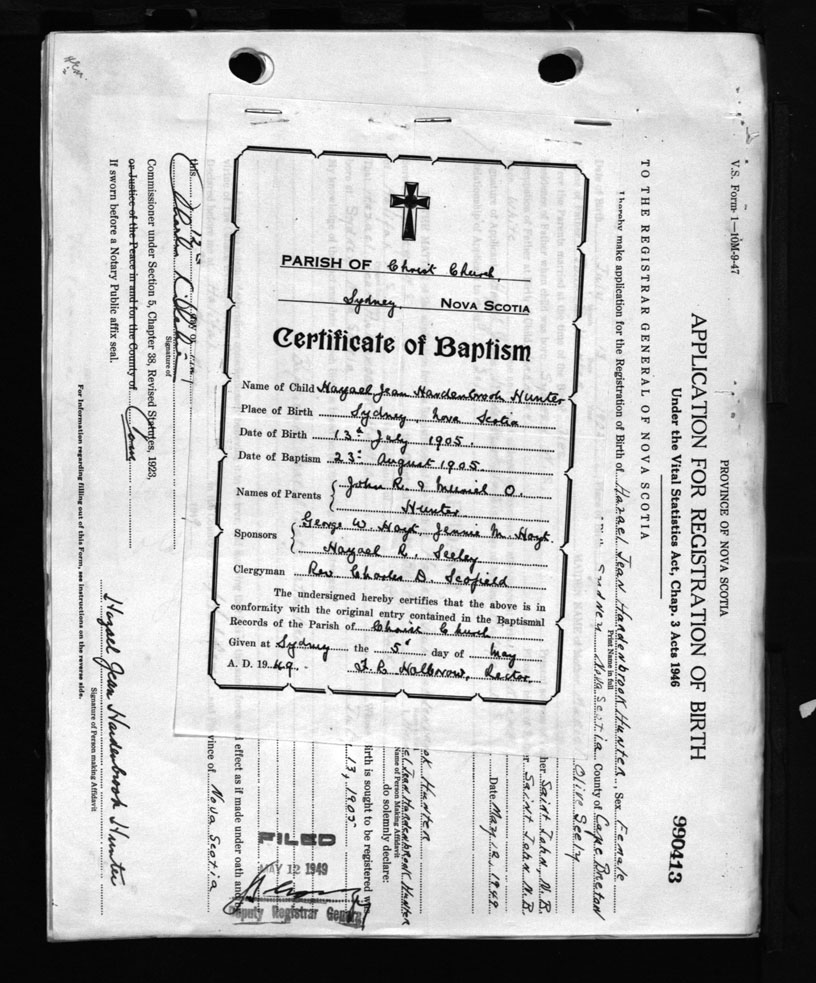 PARISH OF Christ Church
Sydney, NOVA SCOTIA
Certificate of Baptism
Name of Child Hazael Jean Hardenbrook Hunter
Place of Birth Sydney, Nova Scotia
Date of Birth 13th July 1905.
Date of Baptism 23rd August 1905
Names of Parents John R. & Muriel O.
Hunter
Sponsors George W. Hoyt, Jennie M. Hoyt.
Hazael R. Seeley
Clergyman Rev. Charles D. Scofield
The undersigned hereby certifies that the above is in
conformity with the original entry contained in the Baptismal
Records of the Parish of Christ Church
Given at Sydney the 5th day of May
A. D. 1949. Rector
V.S. Form 1—10M-9-47
PROVINCE OF NOVA SCOTIA
APPLICATION FOR REGISTRATION OF BIRTH
Under the Vital Statistics Act, Chap. 3 Acts 1946
990413
TO THE REGISTRAR GENERAL OF NOVA SCOTIA
I hereby make application for the Registration of Birth of Hazael Jean Hardenbrook Hunter, Sex Female
Print Name in full
Sydney Nova Scotia County of Cape Breton
Olive Seely
her Saint John, N.B.
r Saint John N.B.
Date May 12, 1949
ok Hunter
el Jean Hardenbrook Hunter
Name of Person Making Affidavit
do solemnly declare:
irth is sought to be registered w
13, 1905
d effect as if made under oath and
vince of Nova Scotia
FILED
MAY 12 1949
Deputy Registrar General
this 12th
Signature of
Commissioner under Section 5, Chapter 38, Revised Statutes, 1923,
or Justice of the Peace in and for the County of
If sworn before a Notary Public affix seal.
Hazael Jean Hardenbrook Hunter
Signature of Person making Affidavit
For information regarding filling out of this Form, see instructions on the reverse side.